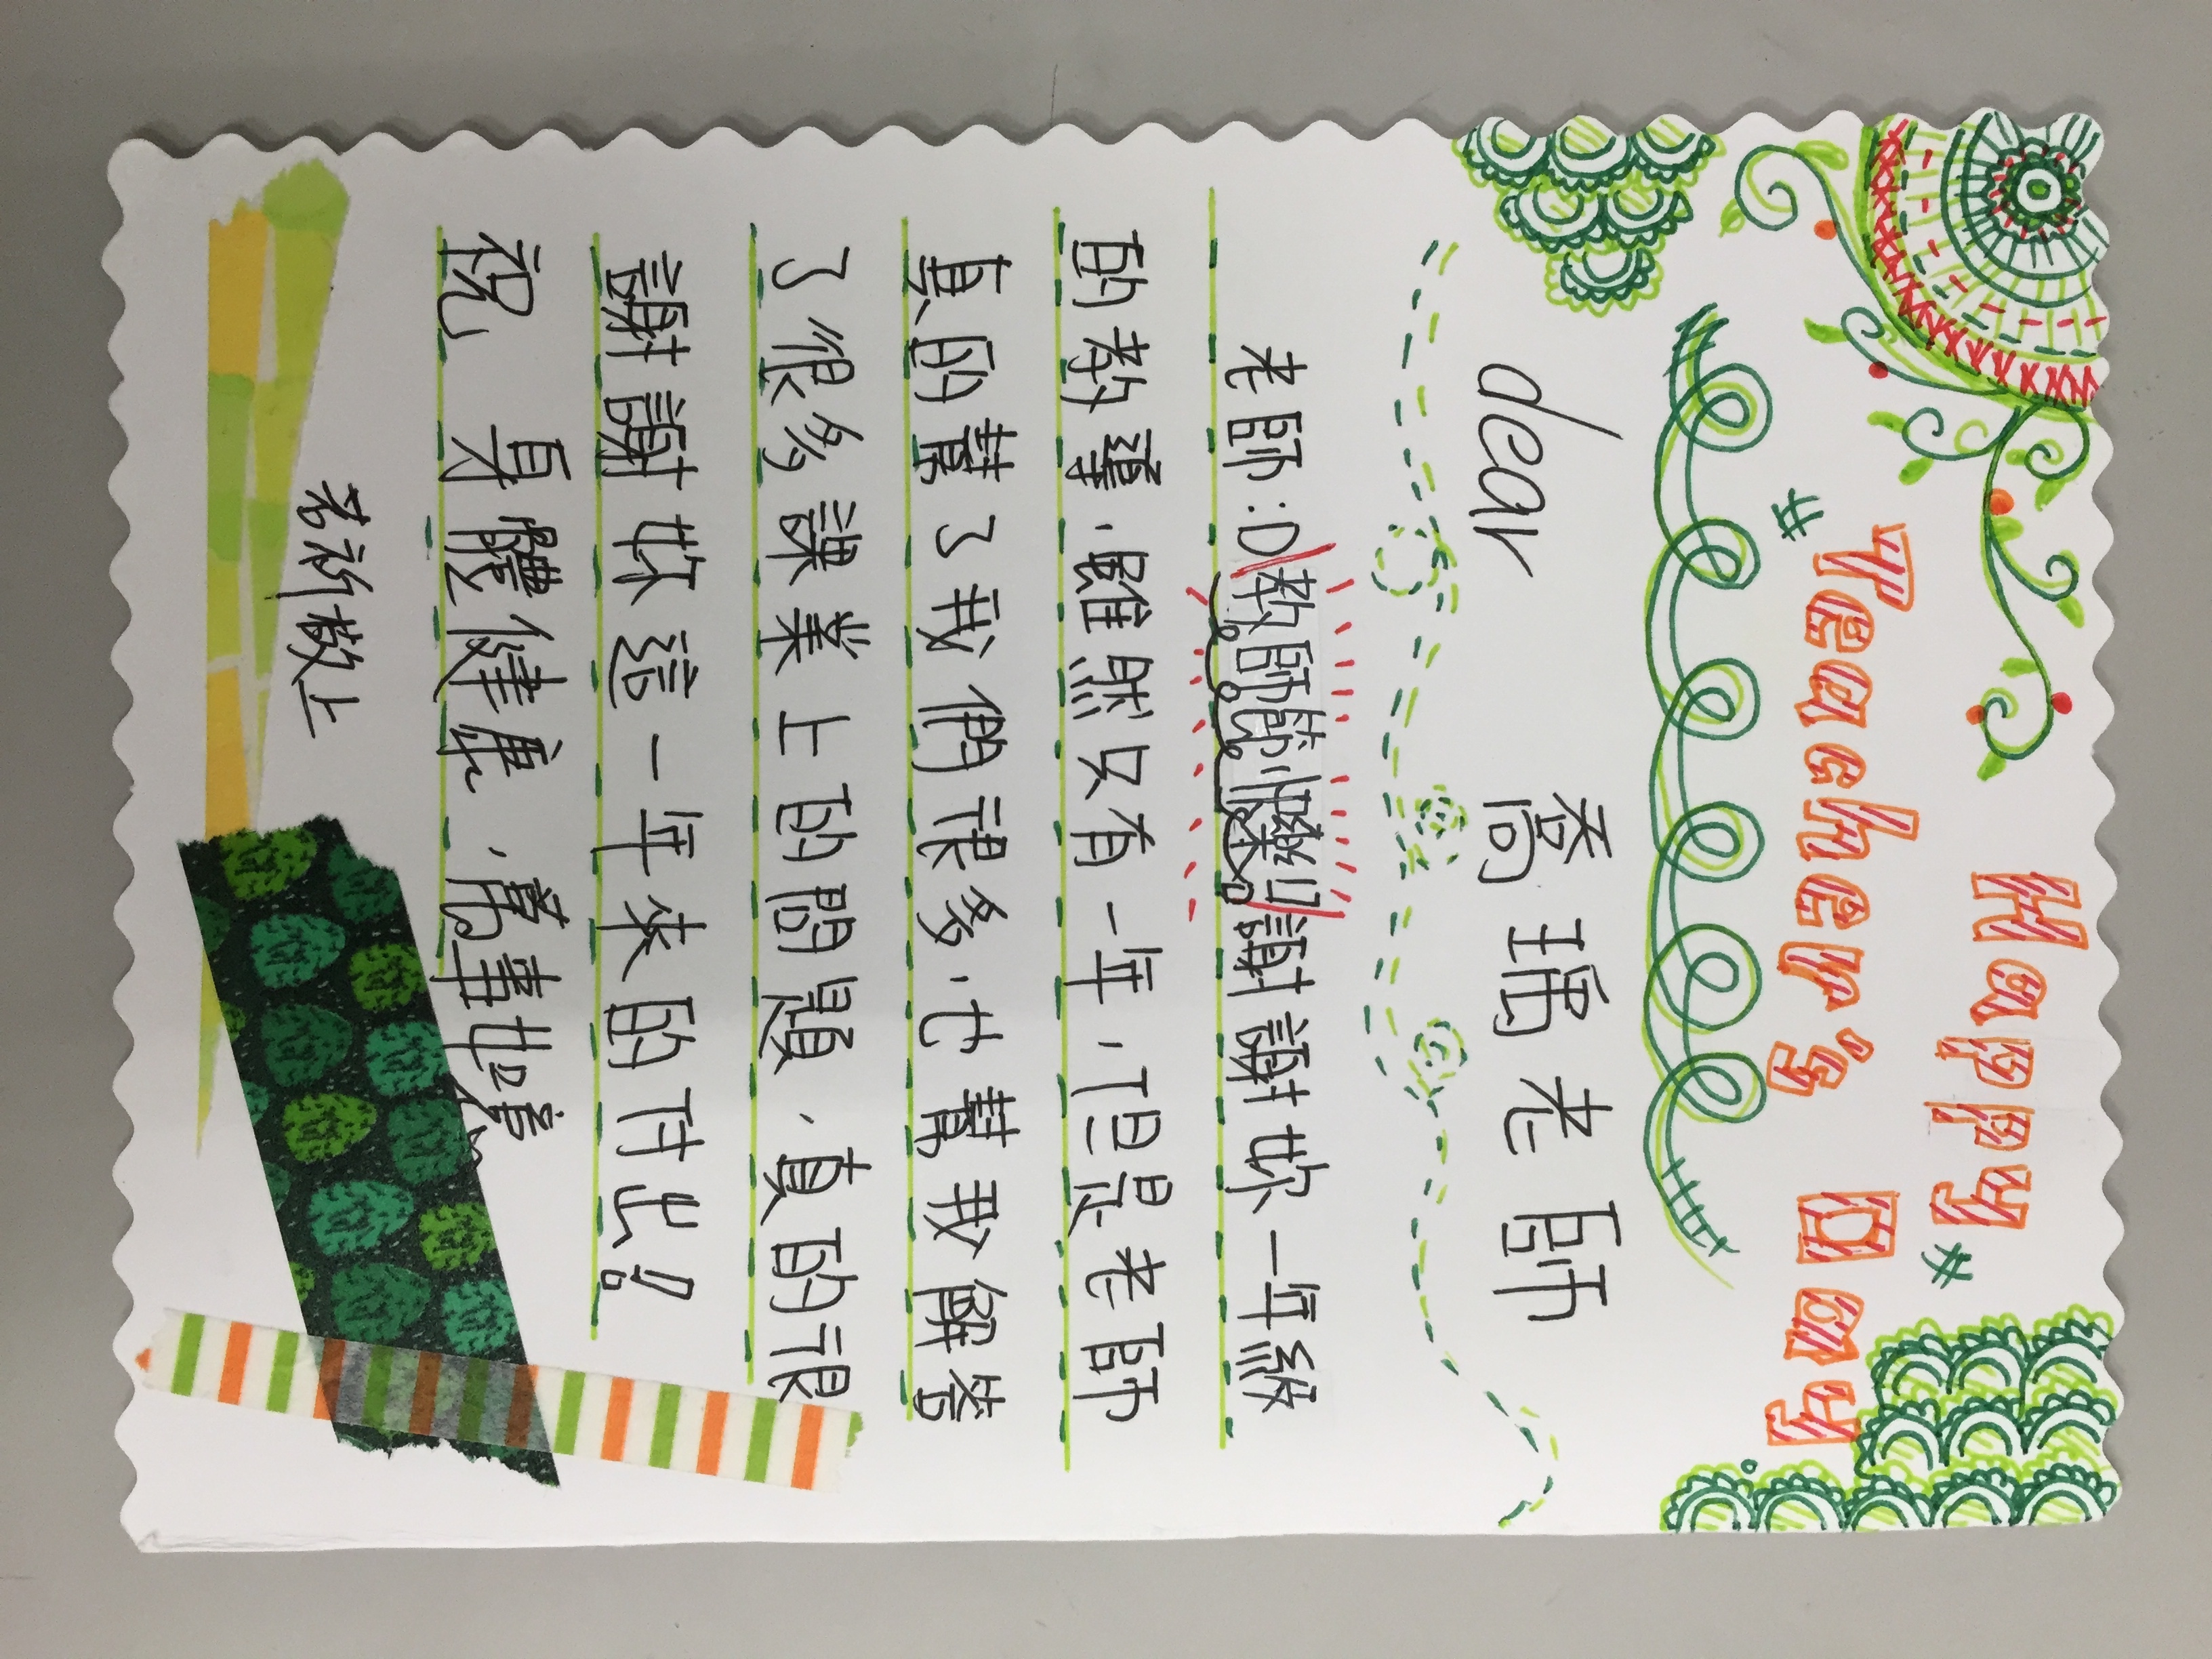 Happy
# Teacher's Day #
dear 喬瑀老師
老師:D 教師節快樂!! 謝謝妳一年級
的教導,雖然只有一年,但是老師
真的幫了我們很多,也幫我解答
了很多課業上的問題,真的很
謝謝妳這一年來的付出!
祝 身體健康,萬事如意
敬上